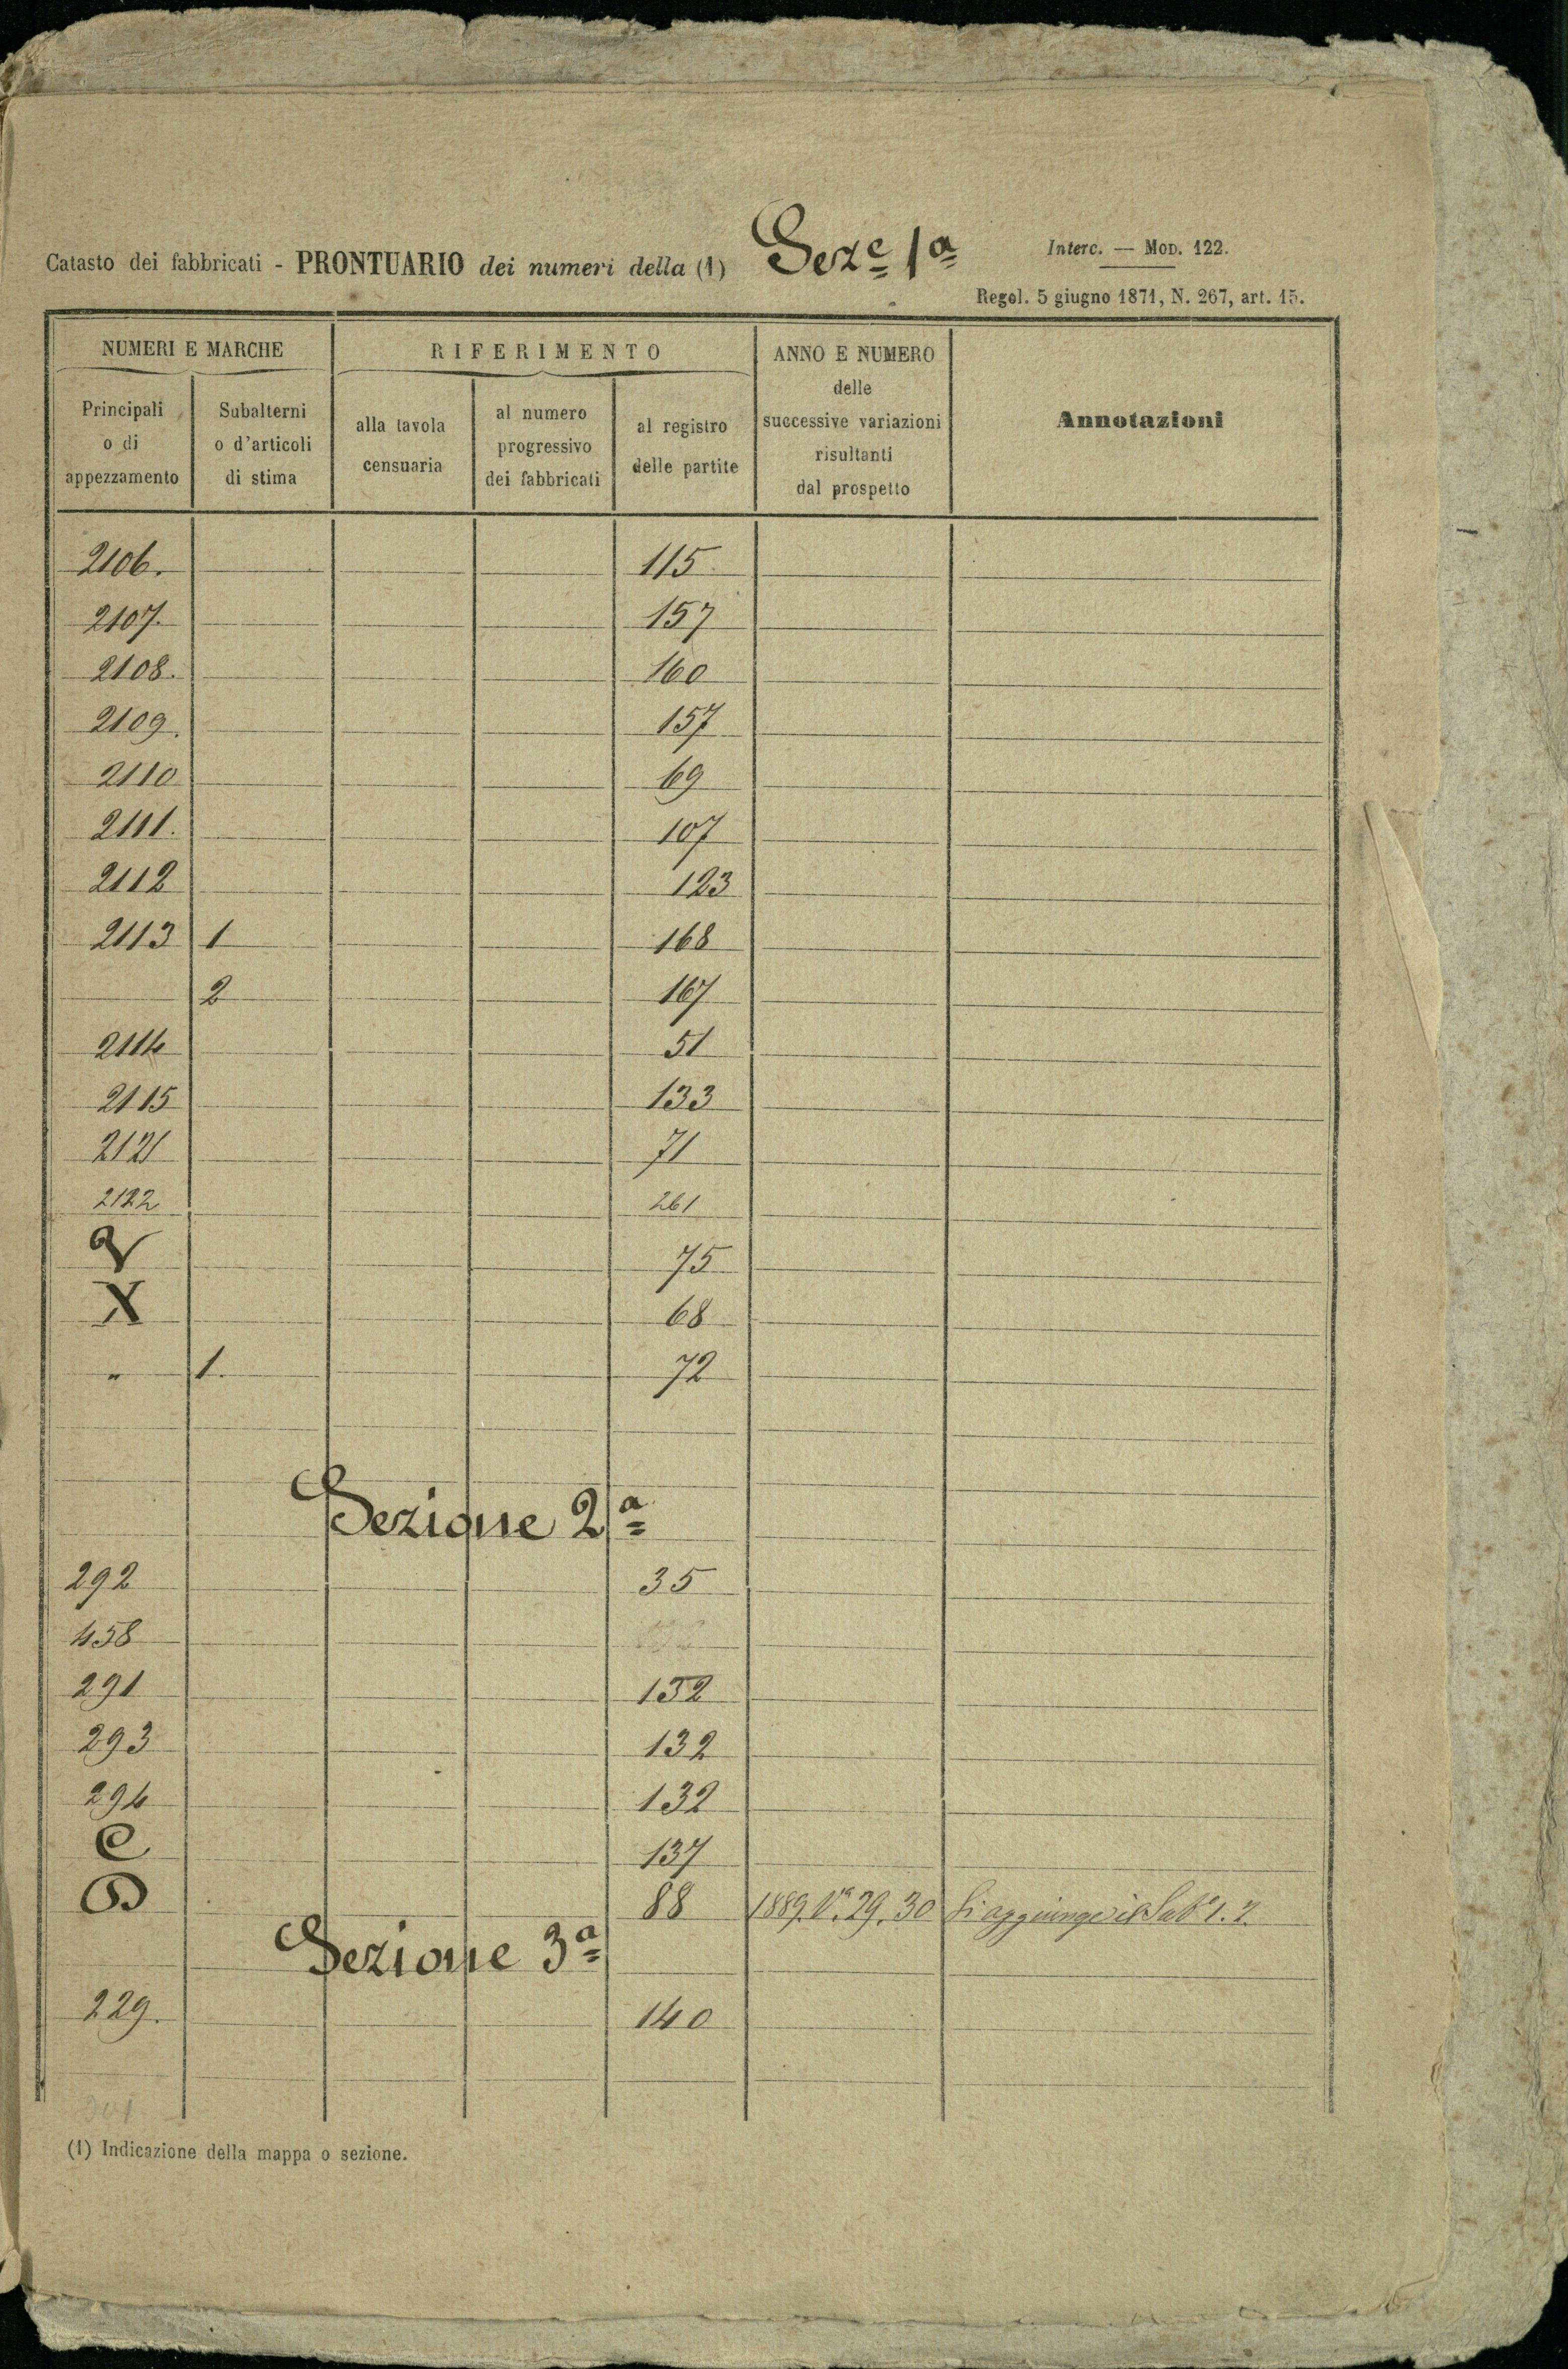 Catasto dei fabbricati - PRONTUARIO dei numeri della (1) Sezᵉ 1ª
Interc. — Mod. 122.
Regol. 5 giugno 1871, N. 267, art. 15.
NUMERI E MARCHE
RIFERIMENTO
ANNO E NUMERO
delle
successive variazioni
risultanti
dal prospetto
Annotazioni
Principali
o di
appezzamento
Subalterni
o d'articoli
di stima
alla tavola
censuaria
al numero
progressivo
dei fabbricati
al registro
delle partite
2106. 115
2107. 157
2108. 160
2109. 157
2110 69
2111. 107
2112 123
2113 1 168
2 167
2114 51
2115 133
2121 71
2122 261
75
X 68
" 1. 72
Sezione 2ª
292 35
458
291 132
293 132
294 132
C 137
D 88 1889. Nⁱ 29. 30 Si aggiunge il Subº 1. 2.
Sezione 3ª
229. 140
(1) Indicazione della mappa o sezione.